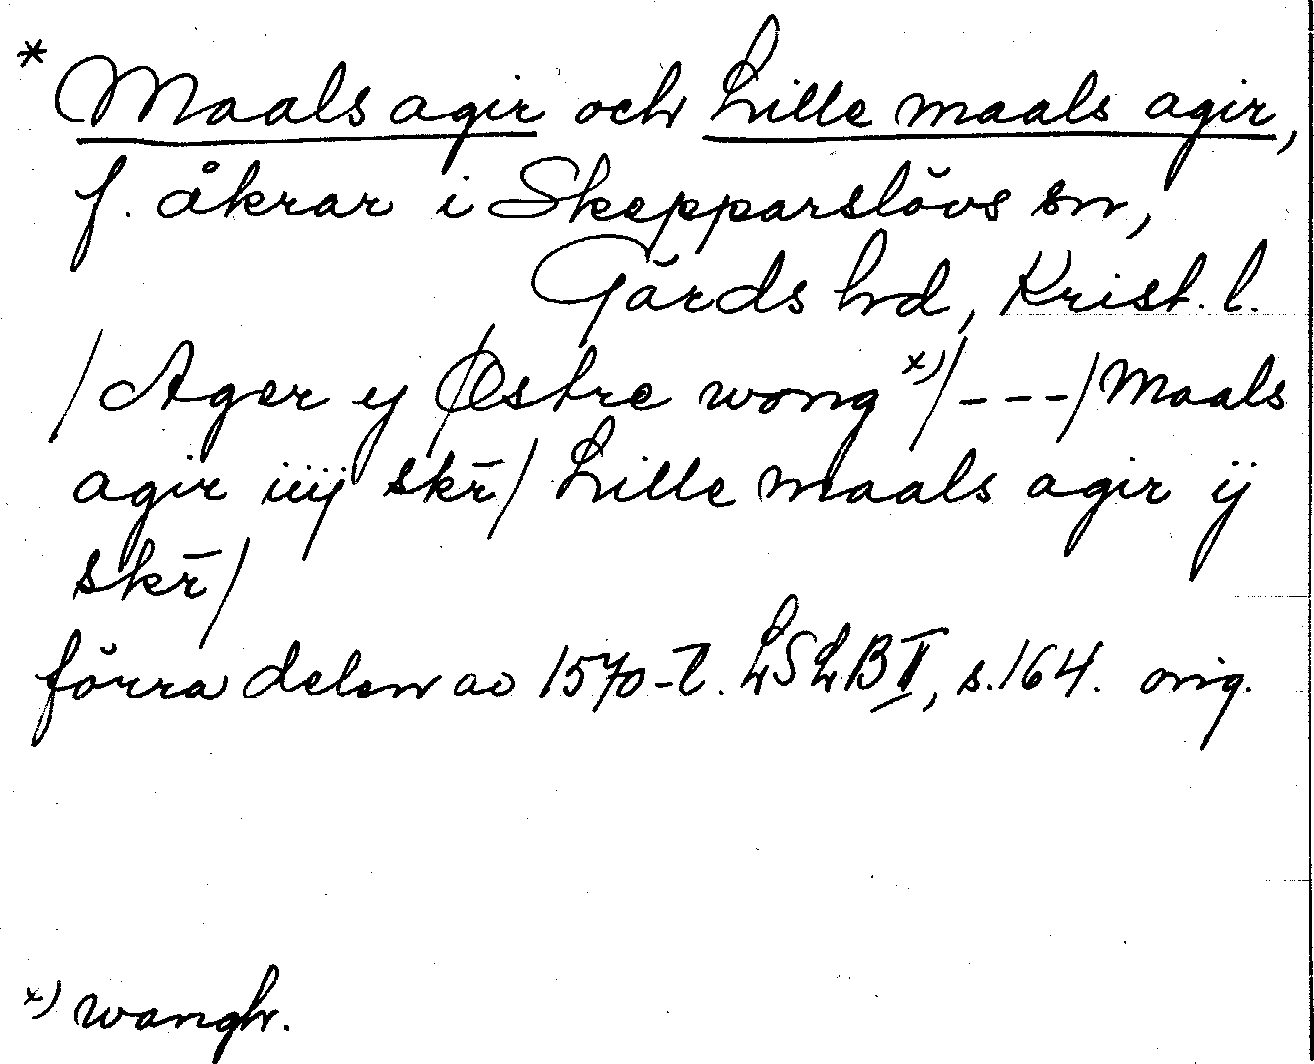 * Maals agir och Lille maals agir,
f. åkrar i Skepparslövs sn,
Gärds hd, Krist. l.
/Ager y Østre wong x)/---/Maals
agir iiij skr̄/ Lille maals agir ij
skr̄/
förra delen av 1570-t. LSLB II, s. 164. orig.
x) wangh.